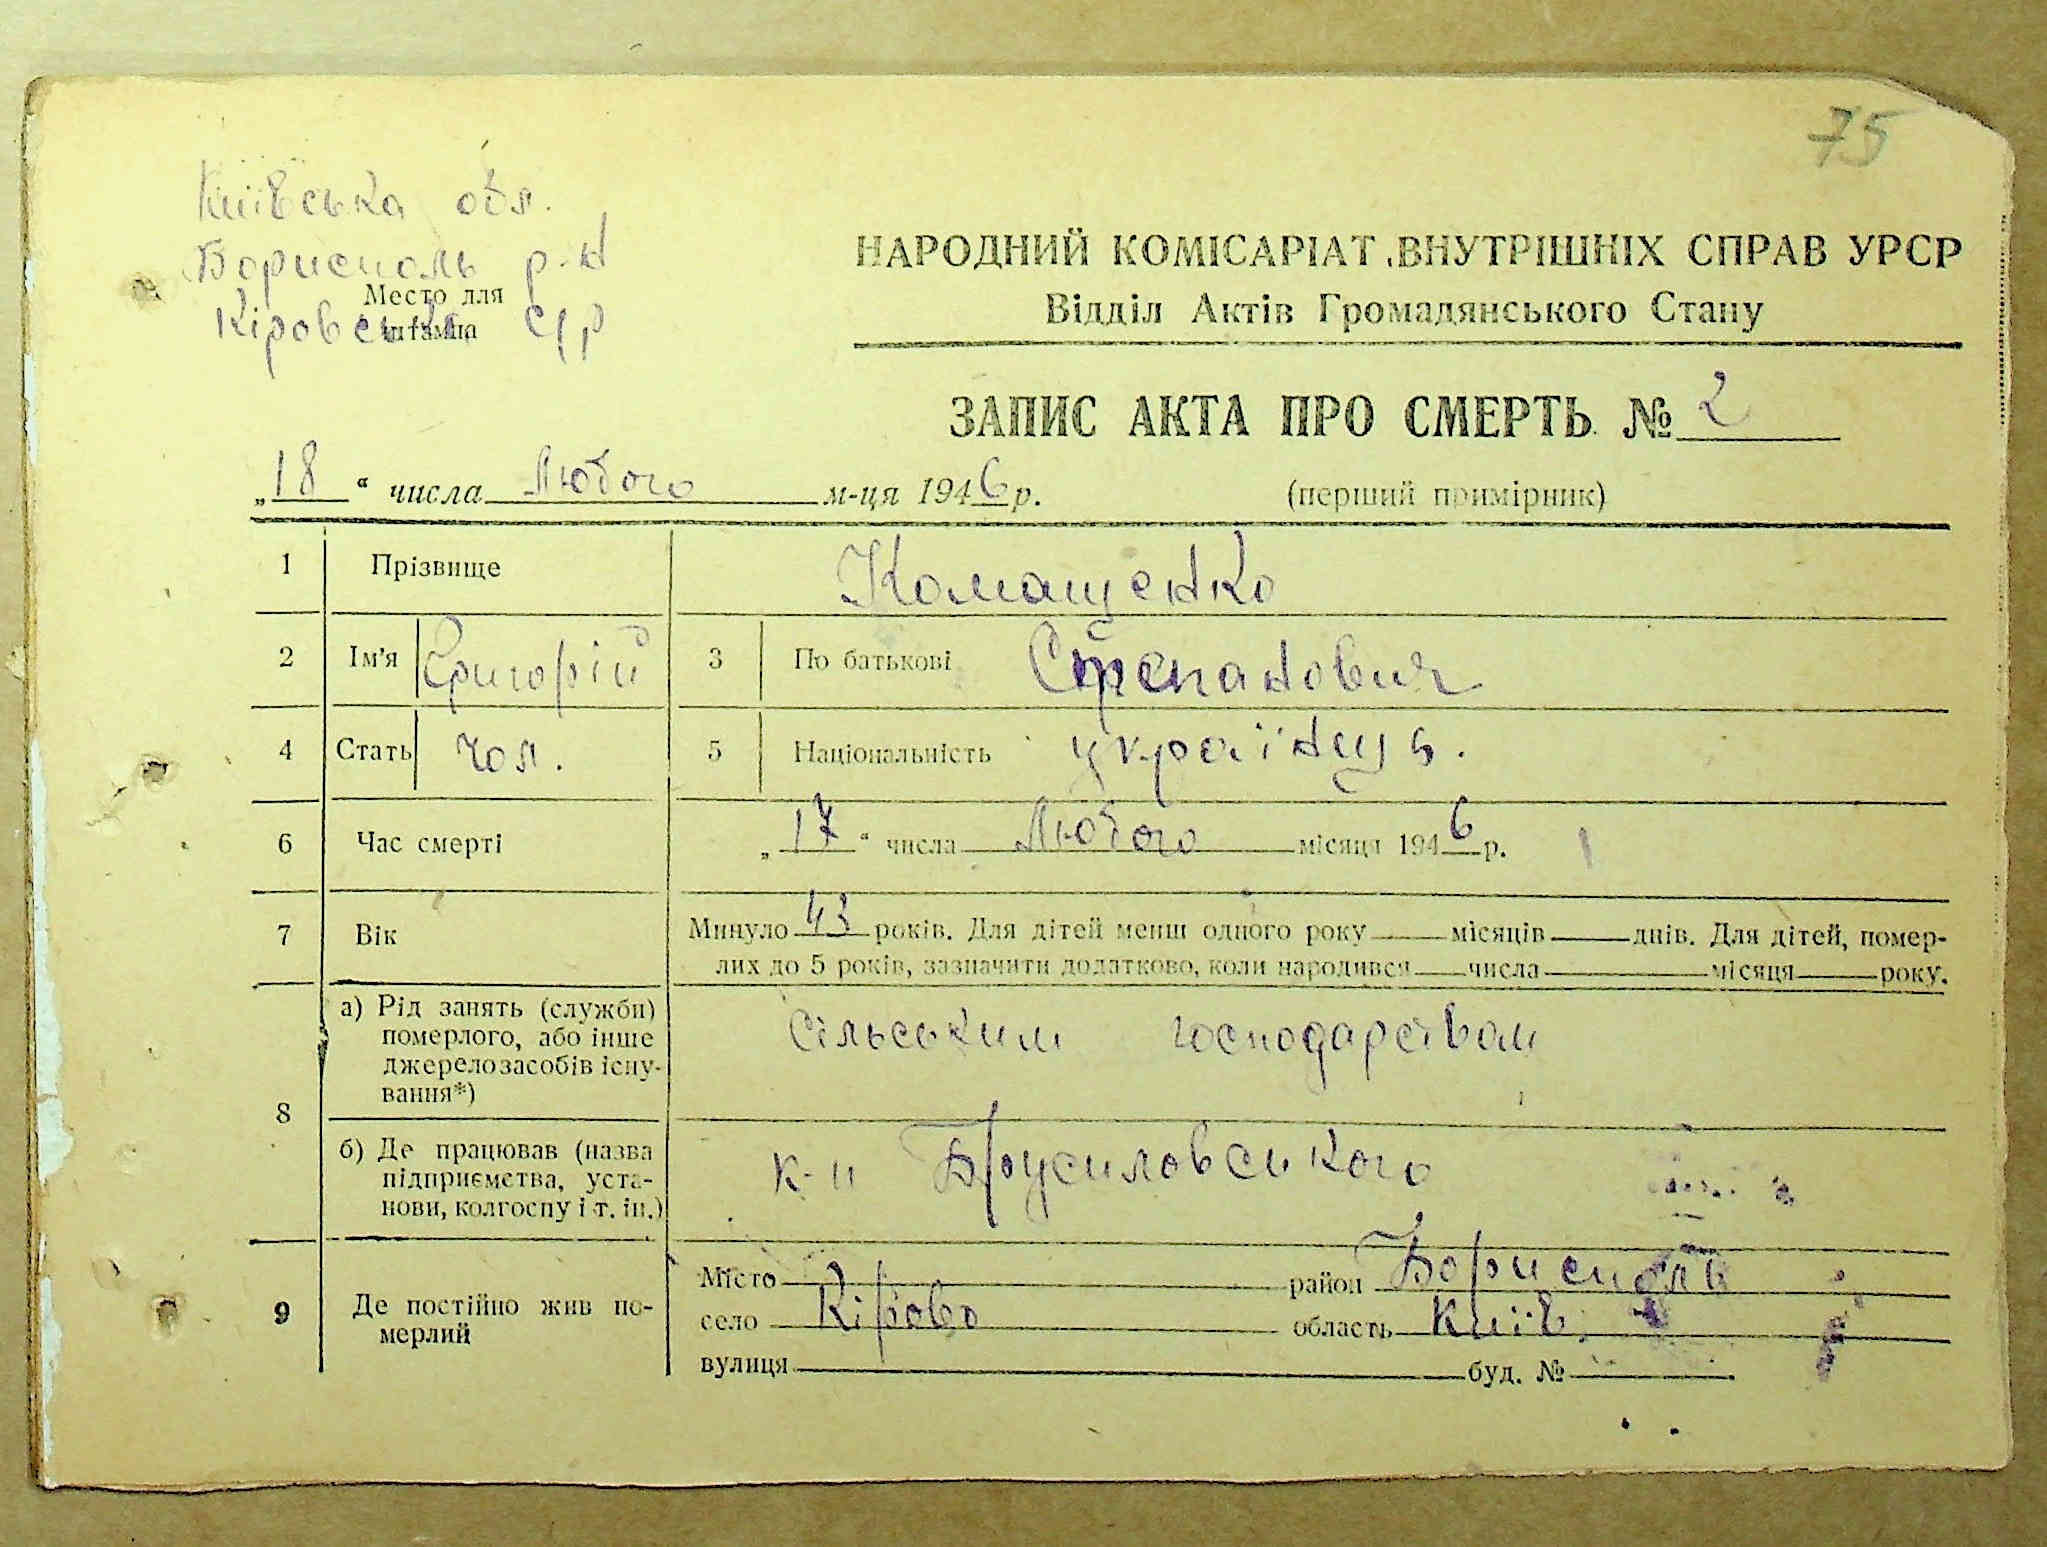 75
Київська обл.
Бориспол р-н
Місто для
штампа
Кіровська с/р
НАРОДНИЙ КОМІСАРІАТ ВНУТРІШНІХ СПРАВ УРСР
Відділ Актів Громадянського Стану
ЗАПИС АКТА ПРО СМЕРТЬ № 2
„18“ числа Лютого м-ця 1946 р. (перший примірник)
1 Прізвище Комащенко
2 Ім'я Григорій 3 По батькові Степанович
4 Стать чол. 5 Національність українць.
6 Час смерті „17“ числа Лютого місяця 1946 р.
7 Вік Минуло 43 років. Для дітей менш одного року місяців днів. Для дітей, помер-
лих до 5 років, зазначити додатково, коли народився числа місяця року.
8 а) Рід занять (служби) померлого, або інше джерело засобів існу-вання*) Сільським господарством
б) Де працював (назва підприємства, уста-нови, колгоспу і т. ін.) к-п Брусиловського
9 Де постійно жив по-мерлий Місто район Бориспол
село Кірово область Київ.
вулиця буд. №